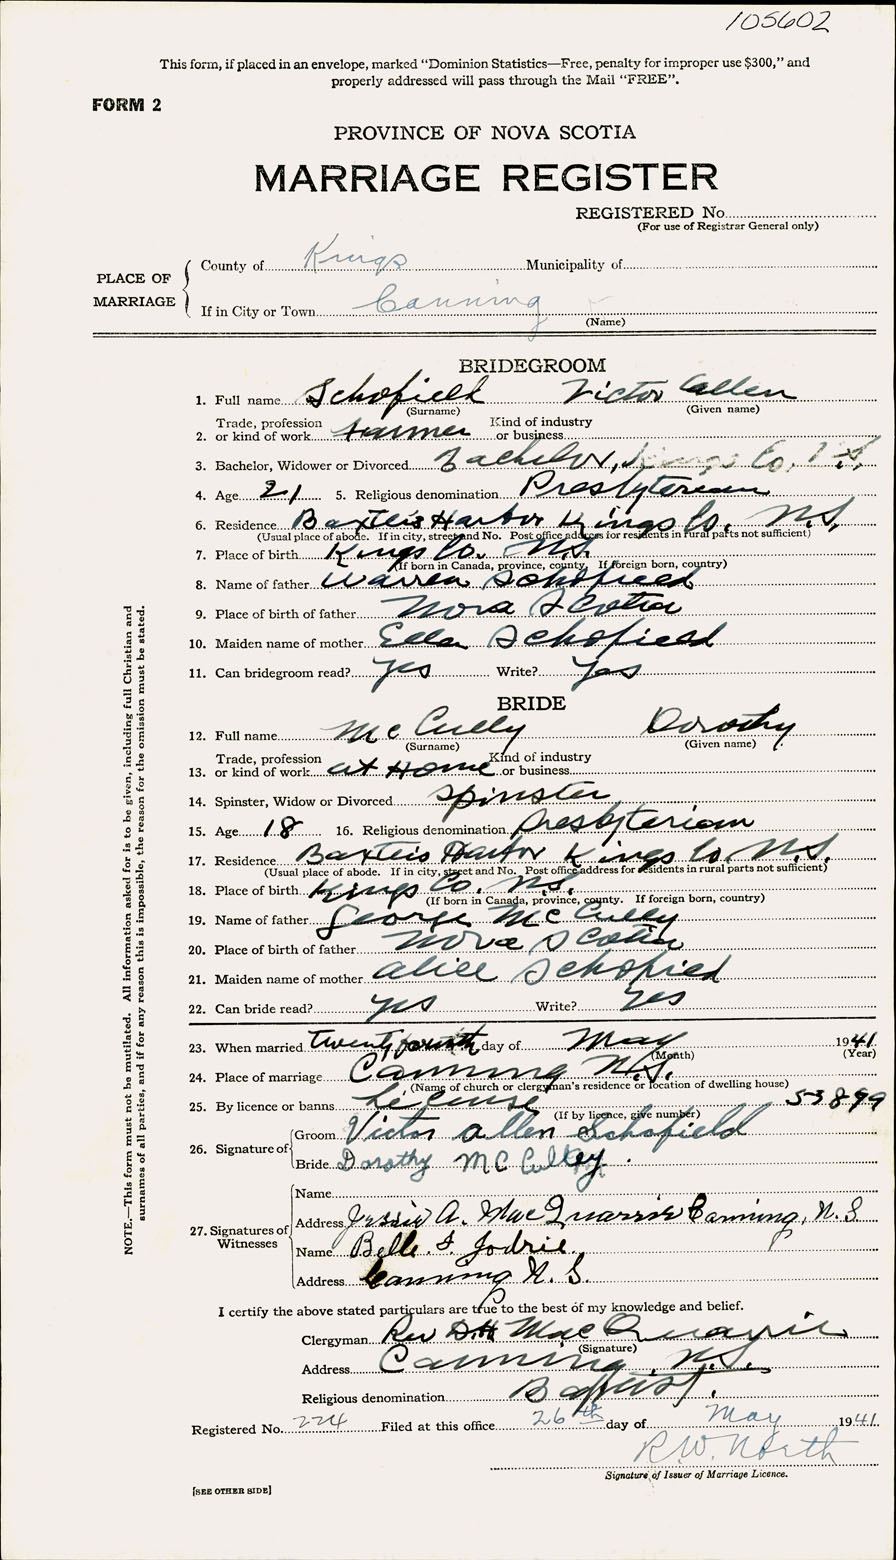 105602
This form, if placed in an envelope, marked “Dominion Statistics—Free, penalty for improper use $300,” and
properly addressed will pass through the Mail “FREE”.
FORM 2
PROVINCE OF NOVA SCOTIA
MARRIAGE REGISTER
REGISTERED No.
(For use of Registrar General only)
PLACE OF MARRIAGE
County of Kings Municipality of
If in City or Town Canning
(Name)
BRIDEGROOM
1. Full name Schofield Victor Allen
(Surname) (Given name)
Trade, profession Kind of industry
2. or kind of work Farmer or business
3. Bachelor, Widower or Divorced Bachelor, Kings Co. N.S.
4. Age 21 5. Religious denomination Presbyterian
6. Residence Baxter's Harbor Kings Co. N.S.
(Usual place of abode. If in city, street and No. Post office address for residents in rural parts not sufficient)
7. Place of birth Kings Co. N.S.
(If born in Canada, province, county. If foreign born, country)
8. Name of father Warren Schofield
9. Place of birth of father Nova Scotia
10. Maiden name of mother Ella Schofield
11. Can bridegroom read? yes Write? yes
BRIDE
12. Full name McCully Dorothy
(Surname) (Given name)
Trade, profession Kind of industry
13. or kind of work at Home or business
14. Spinster, Widow or Divorced Spinster
15. Age 18 16. Religious denomination Presbyterian
17. Residence Baxter's Harbor Kings Co. N.S.
(Usual place of abode. If in city, street and No. Post office address for residents in rural parts not sufficient)
18. Place of birth Kings Co. N.S.
(If born in Canada, province, county. If foreign born, country)
19. Name of father George McCully
20. Place of birth of father Nova Scotia
21. Maiden name of mother Alice Schofied
22. Can bride read? yes Write? yes
23. When married twenty fourth day of May 1941
(Month) (Year)
24. Place of marriage Canning N.S.
(Name of church or clergyman's residence or location of dwelling house)
25. By licence or banns License 53899
(If by licence, give number)
26. Signature of
Groom Victor Allen Schofield
Bride Dorothy McCulley.
27. Signatures of Witnesses
Name
Address Jessie A. MacQuarrie Canning, N.S.
Name Belle F. Jodrie
Address Canning N.S.
I certify the above stated particulars are true to the best of my knowledge and belief.
Clergyman Rev D.H. MacQuarrie
(Signature)
Address Canning, N.S.
Religious denomination Baptist.
Registered No. 224 Filed at this office 26th day of May 1941
R.W. North
Signature of Issuer of Marriage Licence.
[SEE OTHER SIDE]
NOTE.—This form must not be mutilated. All information asked for is to be given, including full Christian and
surnames of all parties, and if for any reason this is impossible, the reason for the omission must be stated.